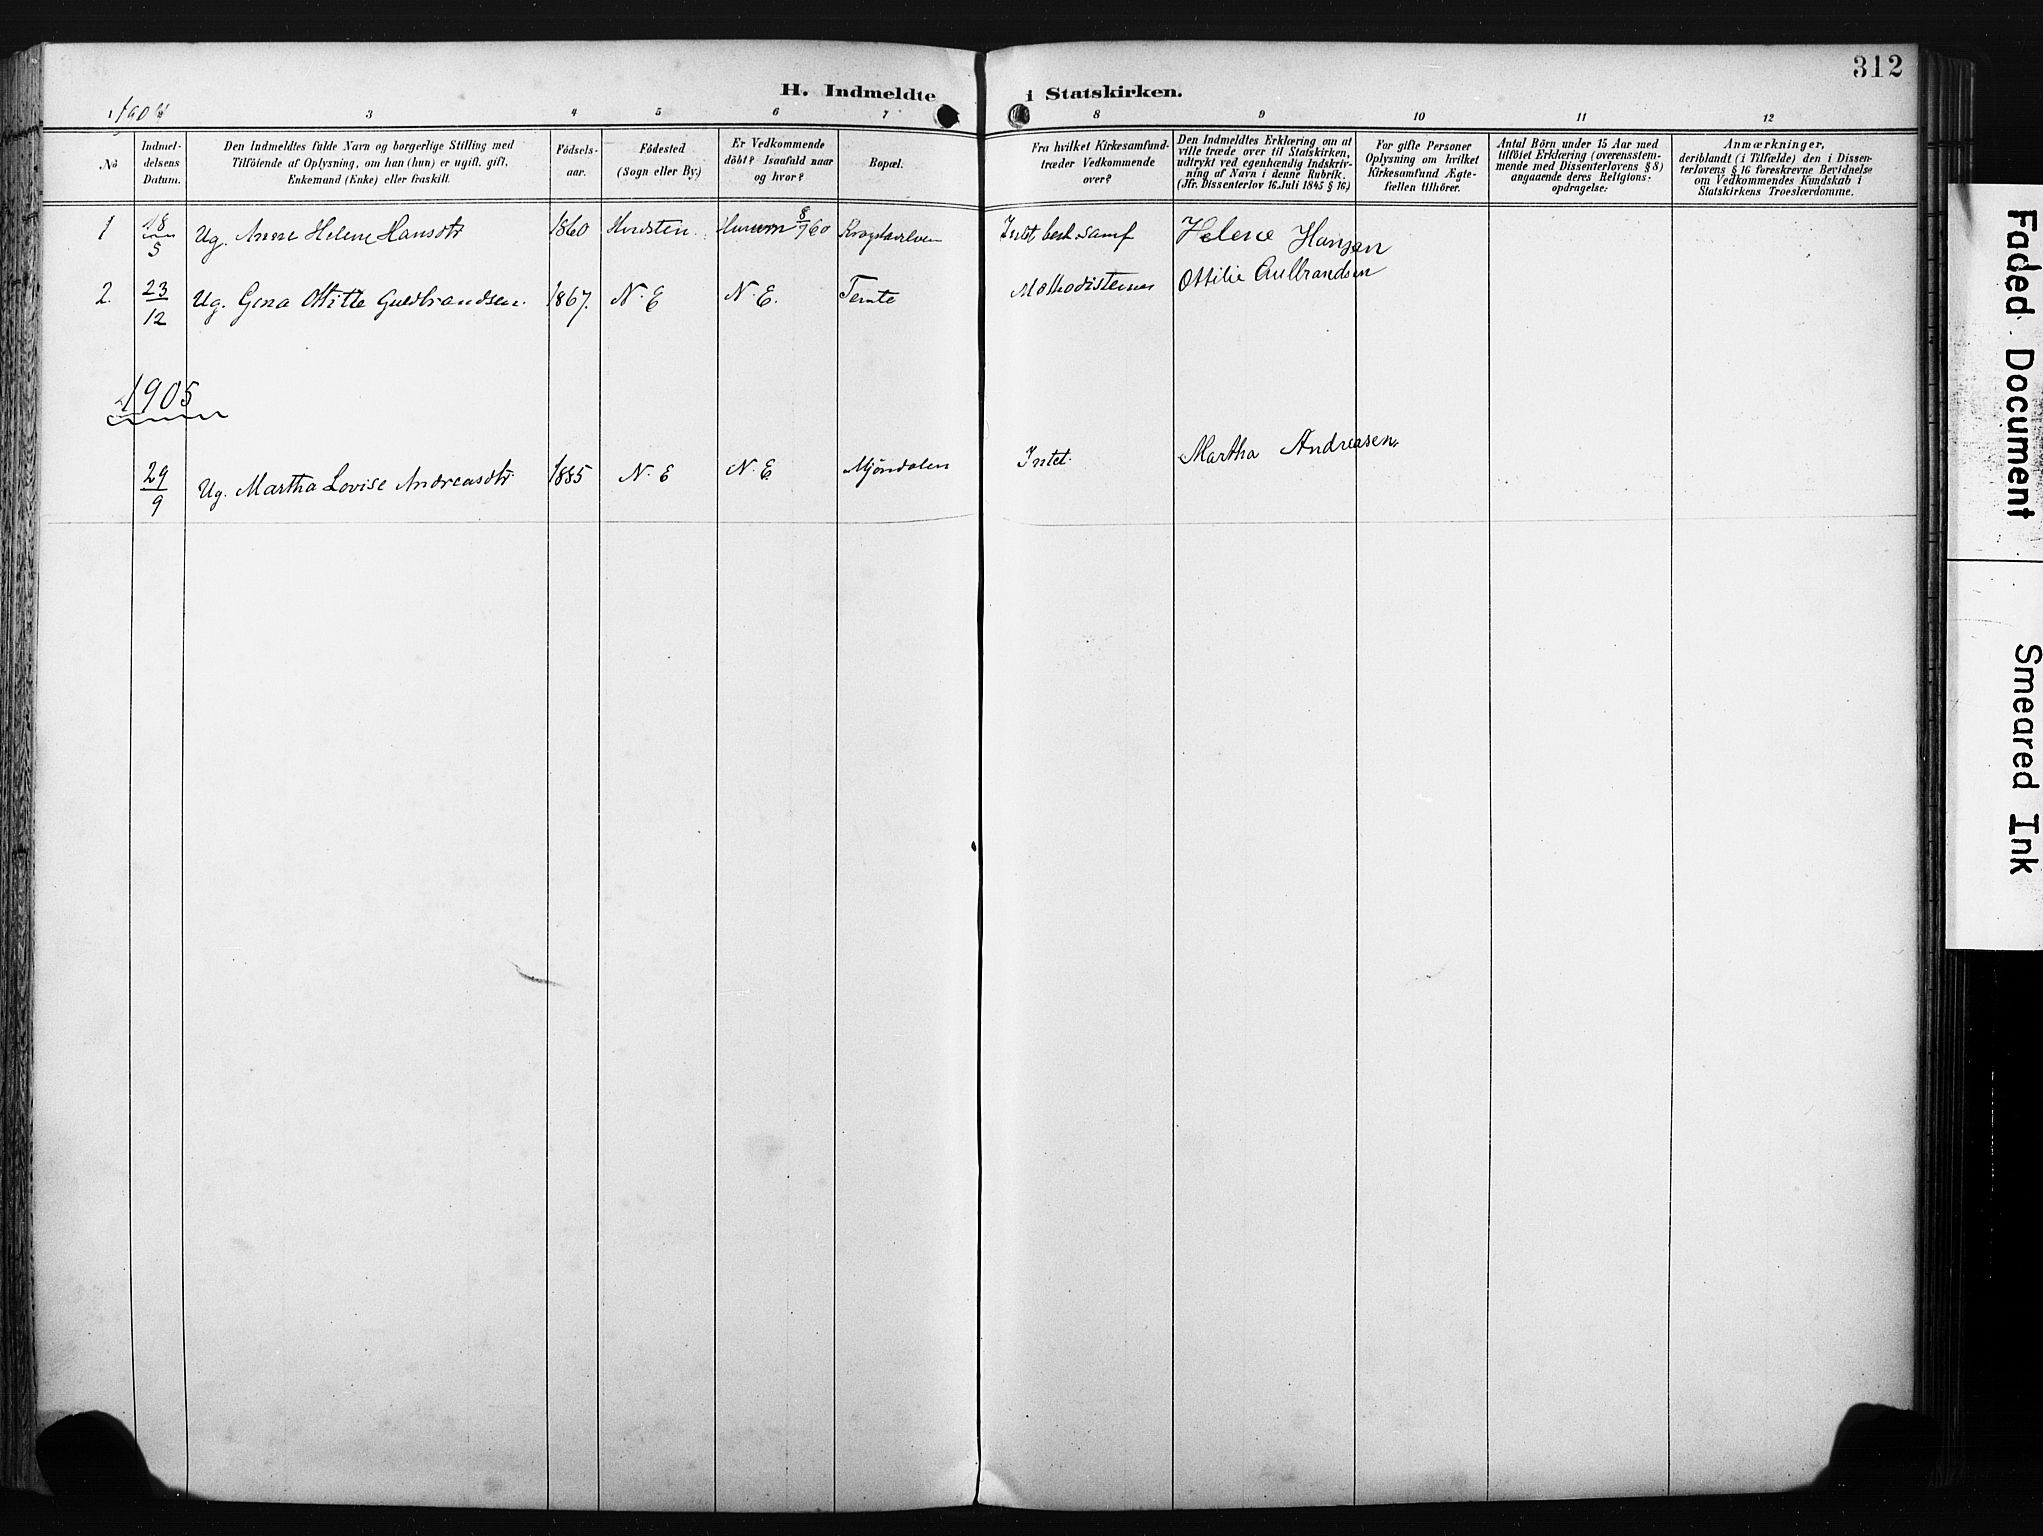 312
H. Indmeldte i Statskirken.
1 2 3 4 5 6 7 8 9 10 11 12
No
Indmel-
delsens
Datum.
Den Indmeldtes fulde Navn og borgerlige Stilling med
Tilföiende af Oplysning, om han (hun) er ugift, gift,
Enkemand (Enke) eller fraskilt.
Födsels-
aar.
Födested
(Sogn eller By.)
Er Vedkommende
döbt? Isaafald naar
og hvor?
Bopæl.
Fra hvilket Kirkesamfund
træder Vedkommende
over?
Den Indmeldtes Erklæring om at
ville træde over til Statskirken,
udtrykt ved egenhændig Indskriv-
ning af Navn i denne Rubrik.
(Jfr. Dissenterlov 16. Juli 1845 § 16)
For gifte Personer
Oplysning om hvilket
Kirkesamfund Ægte-
fællen tilhörer.
Antal Börn under 15 Aar med
tilföiet Erklæring (overensstem-
mende med Dissenterlovens § 8)
angaaende deres Religions-
opdragelse:
Anmærkninger,
deriblandt (i Tilfælde) den i Dissen-
terlovens § 16 foreskrevne Bevidnelse
om Vedkommendes Kundskab i
Statskirkens Troeslærdomme.
1 18/5 Ug. Anne Helene Hansdtr 1860 Hurum 8/7 60 Intet best. samf Helene Hansen
2. 23/12 Ug. Gina Otitte Guldbrandsen. 1867. N. E N. E. Temte Methodisternes Ottilie Gulbrandsen
1905
29/9 Ug. Martha Lovise Andreasdtr. 1885 N. E N. E Mjöndalen Intet. Martha Andreasen.
Faded Document
Smeared Ink